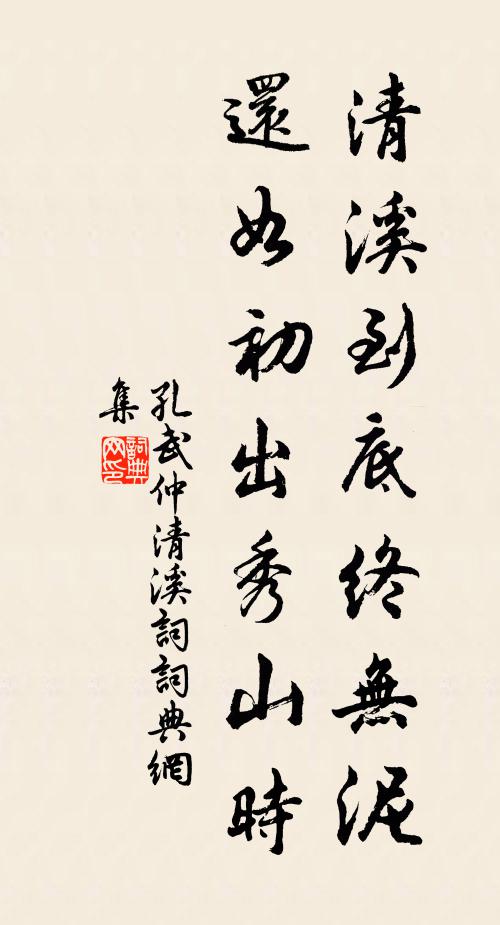 清溪到底終無泥
還如初出秀山時
孔武仲清溪詞詞典網
集
詞典網印